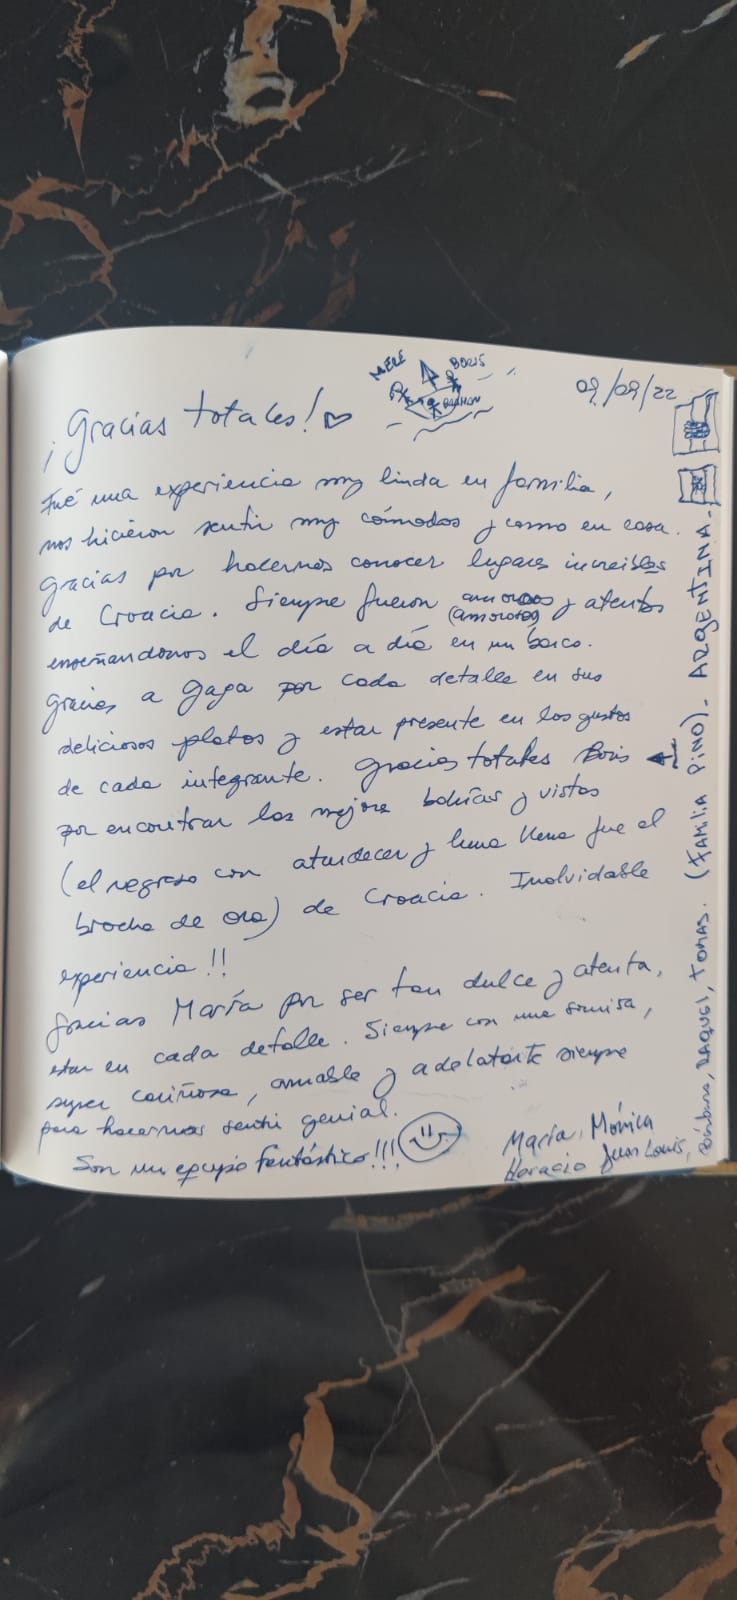 MERÉ
BORIS
09/09/22
¡Gracias totales!
Fué una experiencia muy linda en familia,
nos hicieron sentir muy cómodos y como en casa.
gracias por hacernos conocer lugares increibles
de Croacia. Siempre fueron amorosos y atentos
(amorosos)
enseñandonos el día a día en un barco.
gracias a Gaga por cada detalle en sus
deliciosos platos y estar presente en los gustos
de cada integrante. gracias totales Boris
por encontrar las mejores bahías y vistas
(el regreso con atardecer y luna llena fue el
broche de oro) de Croacia. Inolvidable
experiencia!!
gracias María por ser tan dulce y atenta,
estar en cada detalle. Siempre con una sonrisa,
super cariñosa, amable y adelatarte siempre
para hacernos sentir genial.
Son un equipo fantástico!!!
María, Mónica
Horacio Juan Louis,
Bárbara, RAQUEL, TOMAS. (FAMILIA PINO). ARGENTINA.